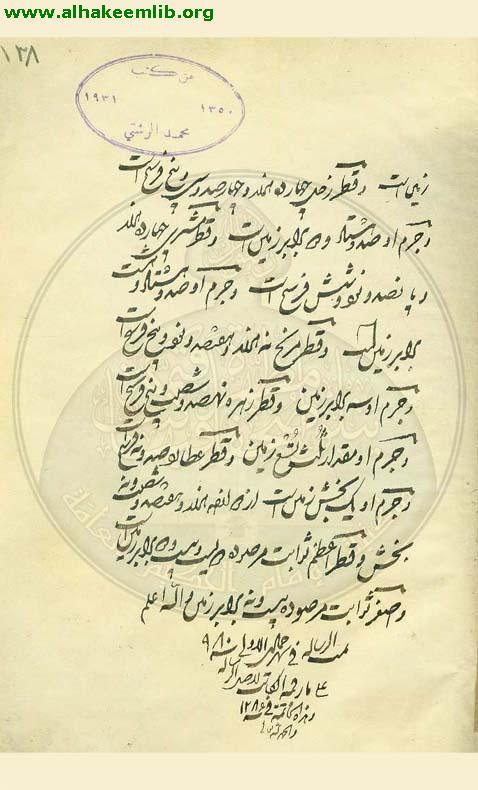 www.alhakeemlib.org
١٣٨
من كتب
١٣٥٠
١٩٣١
محمد الرشتي
زمین است و قطر زحل چهارده هزار و چهار صد و سی و پنج فرسخ است
و جرم او صد و هشتاد و دو برابر زمین است و قطر مشتری چهارده هزار
و پانصد و نود و شش فرسخ است و جرم او صد و هشتاد و هشت
برابر زمین است و قطر مریخ نه هزار و هفتصد و نود و پنج فرسخ است
و جرم او سه برابر زمین و قطر زهره نهصد و شصت و پنج فرسخ است
و جرم او مقدار ثلث تسع زمین و قطر عطارد صد و نه فرسخ
و جرم او یک بخش زمین است از ده الف هزار و هفتصد و شصت و نه
بخش و قطر اعظم ثوابت مرصوده دویست و بیست و دو برابر زمین است
و اصغر ثوابت مرصوده بیست و نه برابر زمین و الله اعلم
تمت الرساله فی شهر جمادی الاولی سنه ٩٨٠
١٢٨٦